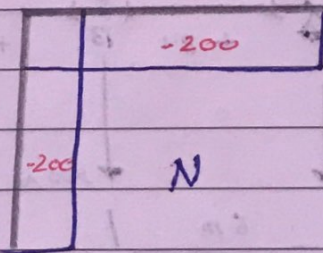 -200
-200 N